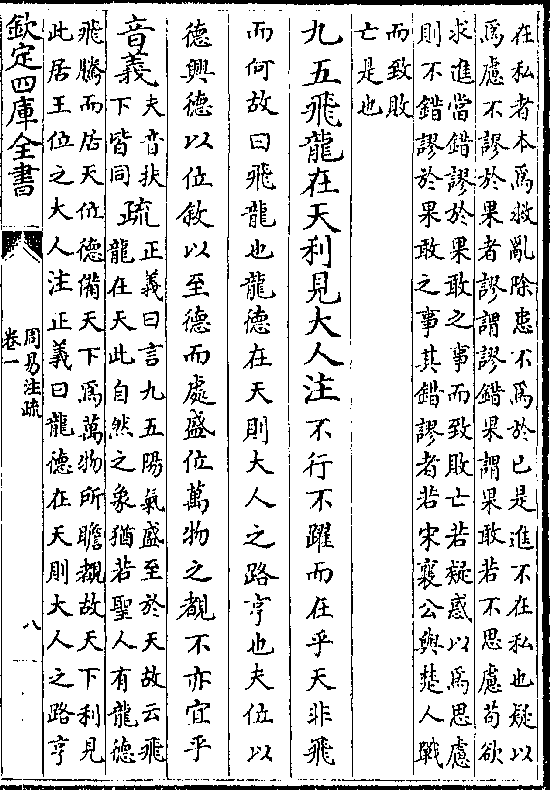 在私者本為救亂除患不為於已是進不在私也疑以
為慮不謬於果者謬謂謬錯果謂果敢若不思慮苟欲
求進當錯謬於果敢之事而致敗亡若疑惑以為思慮
則不錯謬於果敢之事其錯謬者若宋襄公與楚人戰
而致敗
亡是也
九五飛龍在天利見大人注不行不躍而在乎天非飛
而何故曰飛龍也龍德在天則大人之路亨也夫位以
德興德以位敘以至德而處盛位萬物之覩不亦宜乎
音義夫音扶
下皆同
疏正義曰言九五陽氣盛至於天故云飛
龍在天此自然之象猶若聖人有龍德
飛騰而居天位德備天下為萬物所瞻覩故天下利見
此居王位之大人注正義曰龍德在天則大人之路亨
欽定四庫全書
周易注疏
卷一
八